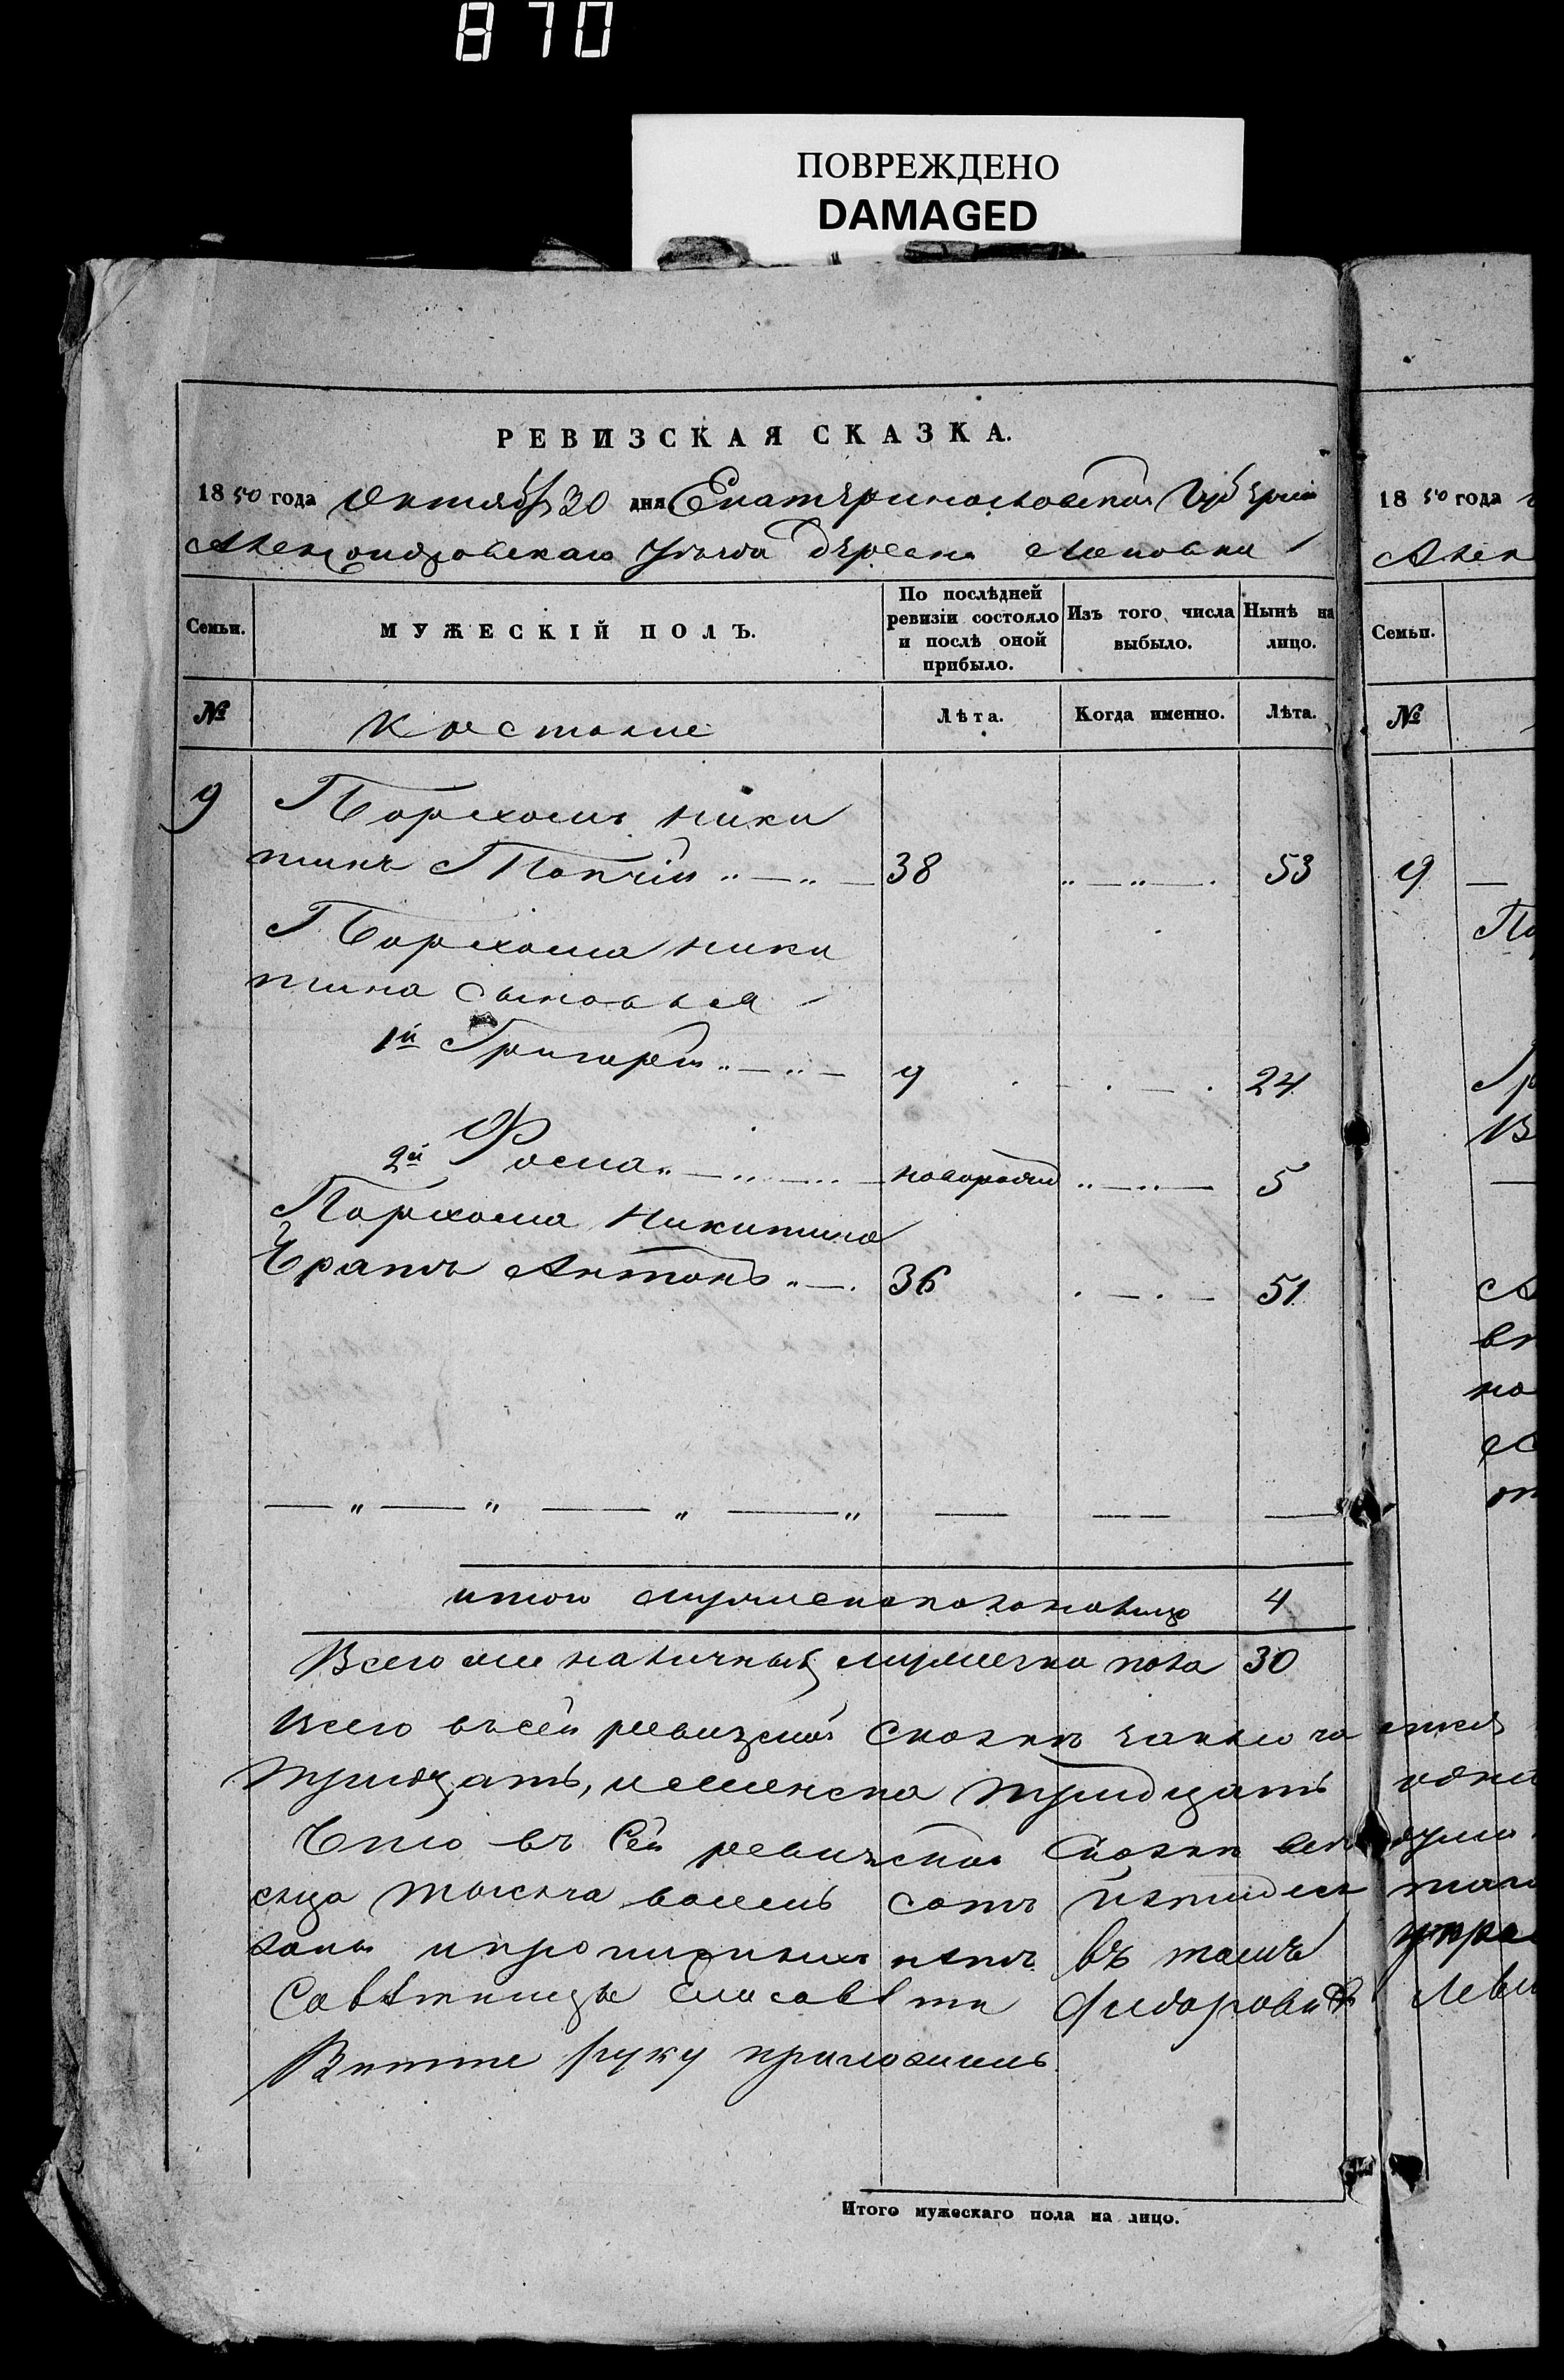 870
ПОВРЕЖДЕНО
DAMAGED
РЕВИЗСКАЯ СКАЗКА.
1850 года Октября 30 дня Екатеринославской Губернии
Александровскаго Уезда деревни
Семьи.
МУЖЕСКІЙ ПОЛЪ.
По послѣдней ревизіи состояло и послѣ оной прибыло.
Изъ того числа выбыло.
Нынѣ на лицо.
№
Лѣта.
Когда именно.
Лѣта.
9 Пархомъ Ники
тинъ 38 53
Пархома Ники
тина сыновья
1й Григорей 9 24
2й Фома новорожд 5
Пархома Никитина
братъ Антонъ 36 51
итого мужеска пола налицо 4
Всего же наличныхъ мужеска пола 30
Всего въ сей ревизской сказке заключа ется
тридцать, женска тридцать одна
Что въ сей ревизской сказки
тысяча восемь сотъ пятидес
въ томъ
Савѣтница Елисавѣта Фидорова
Витте руку приложила
Итого мужескаго пола на лицо.
1850 года
Алек
Семьи.
№
9
Па
Гр